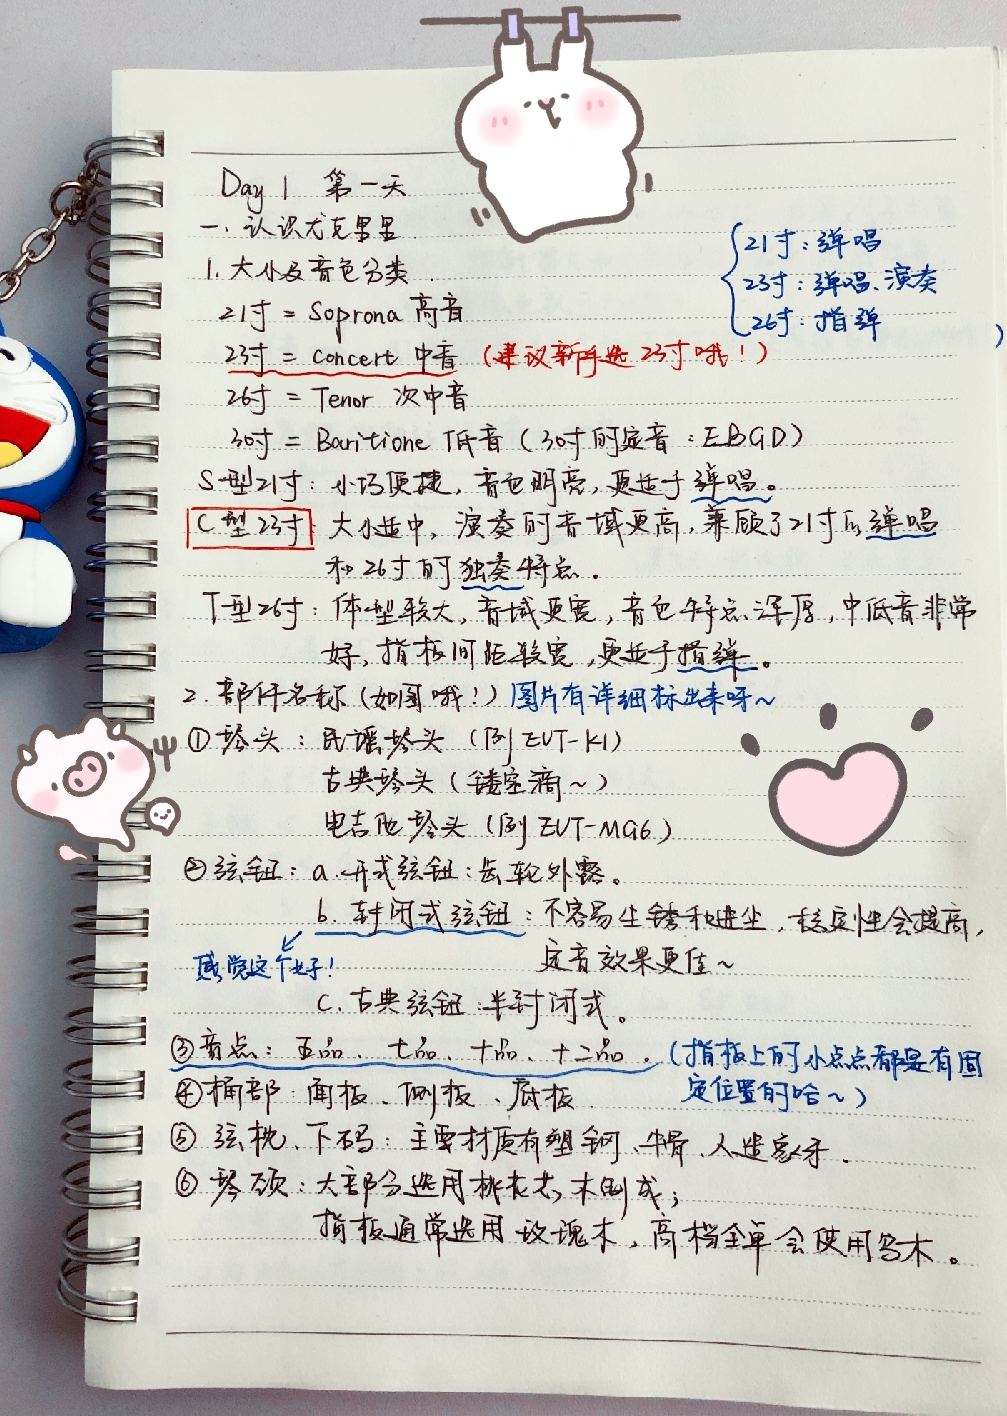 Day 1 第一天
一.认识尤克里里
1.大小及音色分类
21寸：弹唱
23寸：弹唱、演奏
26寸：指弹
21寸 = Soprona 高音
23寸 = concert 中音 (建议新手选23寸哦！)
26寸 = Tenor 次中音
30寸 = Baritione 低音 (30寸的定音：EBGD)
S型21寸：小巧便捷，音色明亮，更适于弹唱。
C型23寸：大小适中，演奏的音域更高，兼顾了21寸的弹唱
和26寸的独奏特点.
T型26寸：体型较大，音域更宽，音色特点浑厚，中低音非常
好，指板间距较宽，更适于指弹。
2.部件名称(如图哦！)图片有详细标出来呀~
①琴头：民谣琴头 (例EUT-K1)
古典琴头 (镂空滴~)
电吉他琴头 (例EUT-MG6)
②弦钮：a.开式弦钮：齿轮外露。
b.封闭式弦钮：不容易生锈和进尘，稳定性会提高，
感觉这个好！
定音效果更佳~
C.古典弦钮：半封闭式。
③音点：五品、七品、十品、十二品.(指板上的小点点都是有固
定位置的哈~)
④桶部：面板、侧板、底板
⑤弦枕、下码：主要材质有塑钢、牛骨、人造象牙.
⑥琴颈：大部分选用桃花芯木制成；
指板通常选用玫瑰木，高档全单会使用乌木。